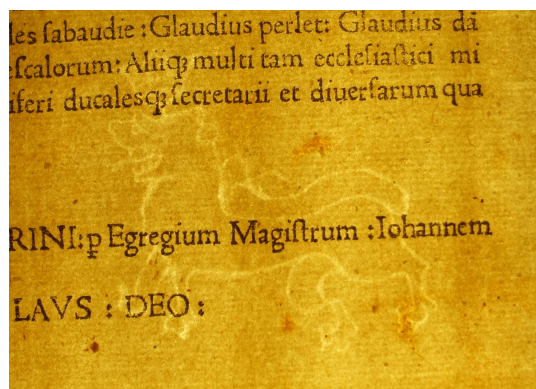 les ſabaudie : Glaudius perlet: Glaudius dã
eſcalorum: Aliiqꝫ multi tam eccleſiaſtici mi
iferi ducaleſqꝫ ſecretarii et diuerſarum qua
RINI: ꝑ Egregium Magiſtrum : Iohannem
LAVS : DEO :